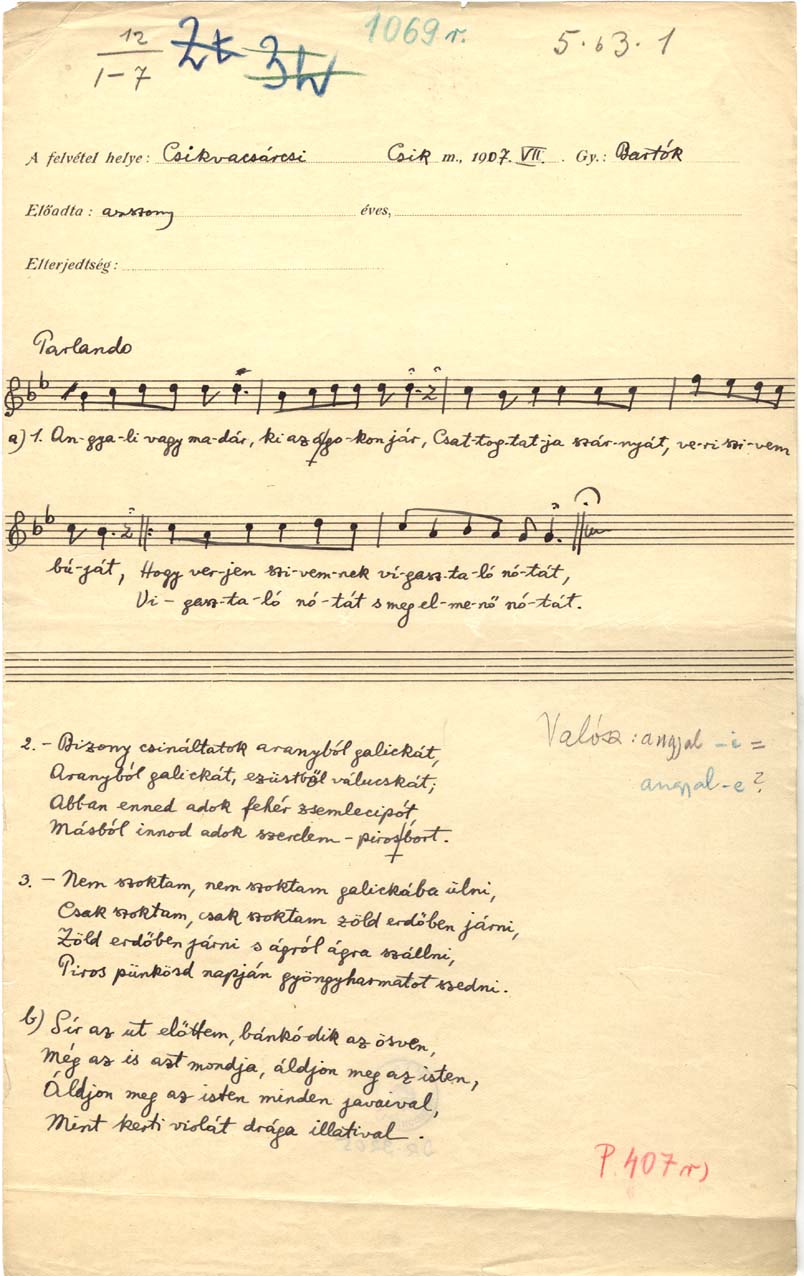 12
1-7
1069 r.
5.63.1
A felvétel helye: Csikvacsárcsi Csik m., 1907. VII. Gy.: Bartók
Előadta: asszony éves,
Elterjedtség:
Parlando
a) 1. An-gya-li vagy ma-dár, ki az á-go-kon jár, Csat-tog-tat-ja szár-nyát, ve-ri szi-vem
bú-ját, Hogy ver-jen szi-vem-nek ví-gasz-ta-ló nó-tát,
Vi-gasz-ta-ló nó-tát s meg el-me-nő nó-tát.
2. - Bizony csináltatok aranyból galickát,
Valósz: angyal-i =
Aranyból galickát, ezüstből válucskát;
angyal-e?
Abban enned adok fehér zsemlecipót,
Másból innod adok szerelem-piros bort.
3. - Nem szoktam, nem szoktam galickába ülni,
Csak szoktam, csak szoktam zöld erdőben járni,
Zöld erdőben járni s ágról ágra szállni,
Piros pünkösd napján gyöngyharmatot szedni.
b) Sír az ut előttem, bánkódik az ösven,
Még az is azt mondja, áldjon meg az isten,
Áldjon meg az isten minden javaival,
Mint kerti violát drága illatival.
P. 407 r)